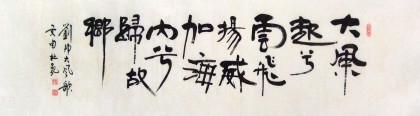 大風
起兮
雲飛
揚威
加海
內兮
歸故
鄉
劉邦大風歌